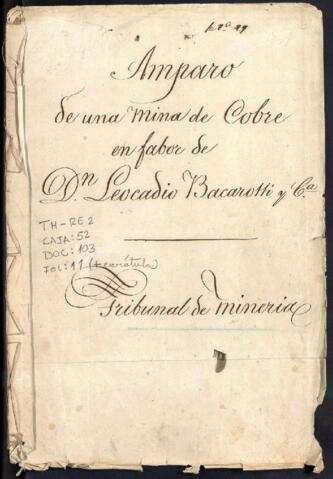 Nº 49
Amparo
de una mina de Cobre
en fabor de
Dn Leocadio Bacarotti y Cª
TM-RE2
CAJA:52
DOC:103
FOL:11 (+carátula)
Tribunal de mineria